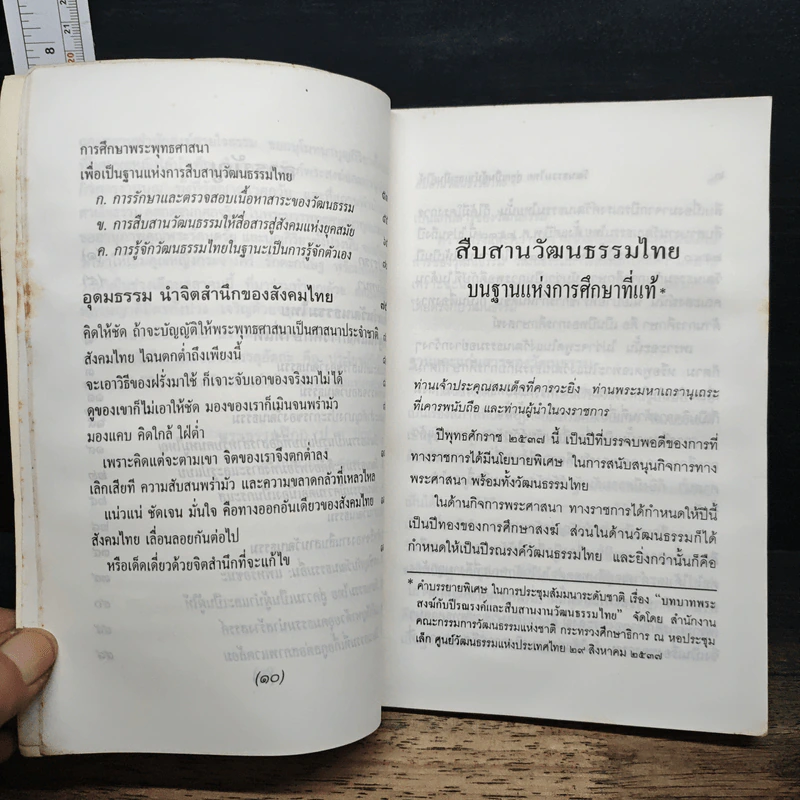 การศึกษาพระพุทธศาสนา
เพื่อเป็นฐานแห่งการสืบสานวัฒนธรรมไทย
ก. การรักษาและตรวจสอบเนื้อหาสาระของวัฒนธรรม
ข. การสืบสานวัฒนธรรมให้สื่อสารสู่สังคมแห่งยุคสมัย
ค. การรู้จักวัฒนธรรมไทยในฐานะเป็นการรู้จักตัวเอง
อุดมธรรม นำจิตสำนึกของสังคมไทย
คิดให้ชัด ถ้าจะบัญญัติให้พระพุทธศาสนาเป็นศาสนาประจำชาติ
สังคมไทย ไฉนตกต่ำถึงเพียงนี้
จะเอาวิธีของฝรั่งมาใช้ ก็เจาะจับเอาของจริงมาไม่ได้
ดูของเขาก็ไม่เอาให้ชัด มองของเราก็เมินจนพร่ามัว
มองแคบ คิดใกล้ ใฝ่ต่ำ
เพราะคิดแต่จะตามเขา จิตของเราจึงตกต่ำลง
เลิกเสียที ความสับสนพร่ามัว และความขลาดกลัวที่เหลวไหล
แน่วแน่ ชัดเจน มั่นใจ คือทางออกอันเดียวของสังคมไทย
สังคมไทย เลื่อนลอยกันต่อไป
หรือเด็ดเดี่ยวด้วยจิตสำนึกที่จะแก้ไข
(๑๐)
สืบสานวัฒนธรรมไทย
บนฐานแห่งการศึกษาที่แท้*
ท่านเจ้าประคุณสมเด็จที่คารวะยิ่ง ท่านพระมหาเถรานุเถระ
ที่เคารพนับถือ และท่านผู้นำในวงราชการ
ปีพุทธศักราช ๒๕๓๗ นี้ เป็นปีที่บรรจบพอดีของการที่
ทางราชการได้มีนโยบายพิเศษ ในการสนับสนุนกิจการทาง
พระศาสนา พร้อมทั้งวัฒนธรรมไทย
ในด้านกิจการพระศาสนา ทางราชการได้กำหนดให้ปีนี้
เป็นปีทองของการศึกษาสงฆ์ ส่วนในด้านวัฒนธรรมก็ได้
กำหนดให้เป็นปีรณรงค์วัฒนธรรมไทย และยิ่งกว่านั้นก็คือ
* คำบรรยายพิเศษ ในการประชุมสัมมนาระดับชาติ เรื่อง "บทบาทพระ
สงฆ์กับปีรณรงค์และสืบสานงานวัฒนธรรมไทย" จัดโดย สำนักงาน
คณะกรรมการวัฒนธรรมแห่งชาติ กระทรวงศึกษาธิการ ณ หอประชุม
เล็ก ศูนย์วัฒนธรรมแห่งประเทศไทย ๒๙ สิงหาคม ๒๕๓๗
8
20
21